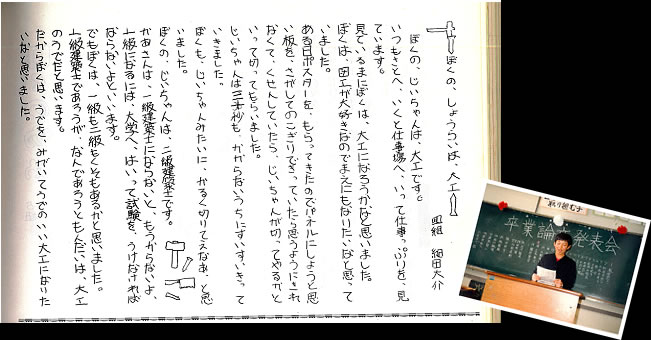 ぼくの、しょうらいは、大工
四組 細田大介
ぼくの、じいちゃんは、大工です。
いつもさとへ、いくと仕事場へ、いって仕事っぷりを、見
ています。
見ているまにぼくは、大工になろうかなと思いました。
ぼくは、図工が大好きなのでまえにもなりたいなと思って
いました。
ある日ポスターを、もらってきたのでパネルにしようと思
い板を、さがしてのこぎりできっていたら思うようにきれ
なくて、くせんしていたら、じいちゃんが切ってやるかと
いって切ってもらいました。
じいちゃんは三十秒も、かからないうちにすいすいきって
いきました。
ぼくも、じいちゃんみたいに、かるく切りてえなあ、と思
いました。
ぼくの、じいちゃんは、二級建築士です。
かあさんは、一級建築士にならないと、もうからないよ、
一級になるには、大学へ、はいって試験を、うけなければ
ならないよといいます。
でもぼくは、一級も二級もくそもあるかと思いました。
一級建築士であろうが、なんであろうともんだいは、大工
のうでだと思います。
だからぼくは、うでを、みがいてうでのいい大工になりた
いなと思いました。
卒業論文発表会